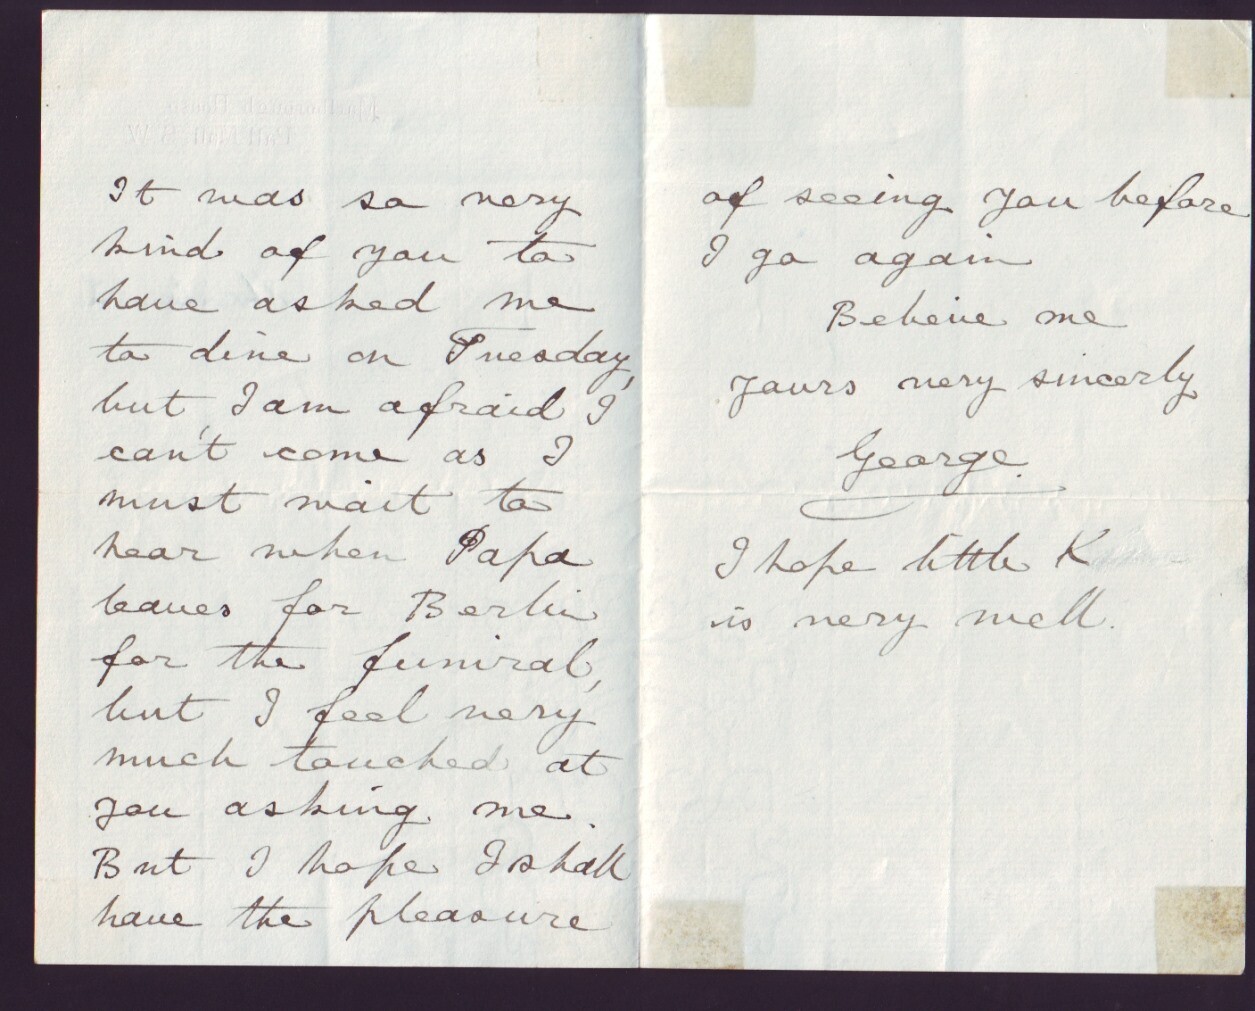 It was so very
kind of you to
have asked me
to dine on Tuesday,
but I am afraid I
can't come as I
must wait to
hear when Papa
leaves for Berlin
for the funiral,
but I feel very
much touched at
you asking me.
But I hope I shall
have the pleasure
of seeing you before
I go again
Believe me
yours very sincerly
George.
I hope little K
is very well.